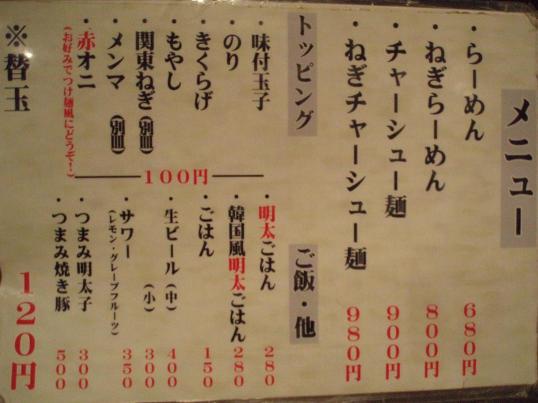 メニュー
・らーめん 680円
・ねぎらーめん 800円
・チャーシュー麺 900円
・ねぎチャーシュー麺 980円
トッピング
・味付玉子
・のり
・きくらげ
・もやし
・関東ねぎ(別皿)
・メンマ(別皿)
・赤オニ
(お好みでつけ麺風にどうぞ!)
100円
ご飯・他
・明太ごはん 280
・韓国風明太ごはん 280
・ごはん 150
・生ビール(中) 400
(小) 300
・サワー 350
(レモン・グレープフルーツ)
・つまみ明太子 300
・つまみ焼き豚 500
※替玉 120円